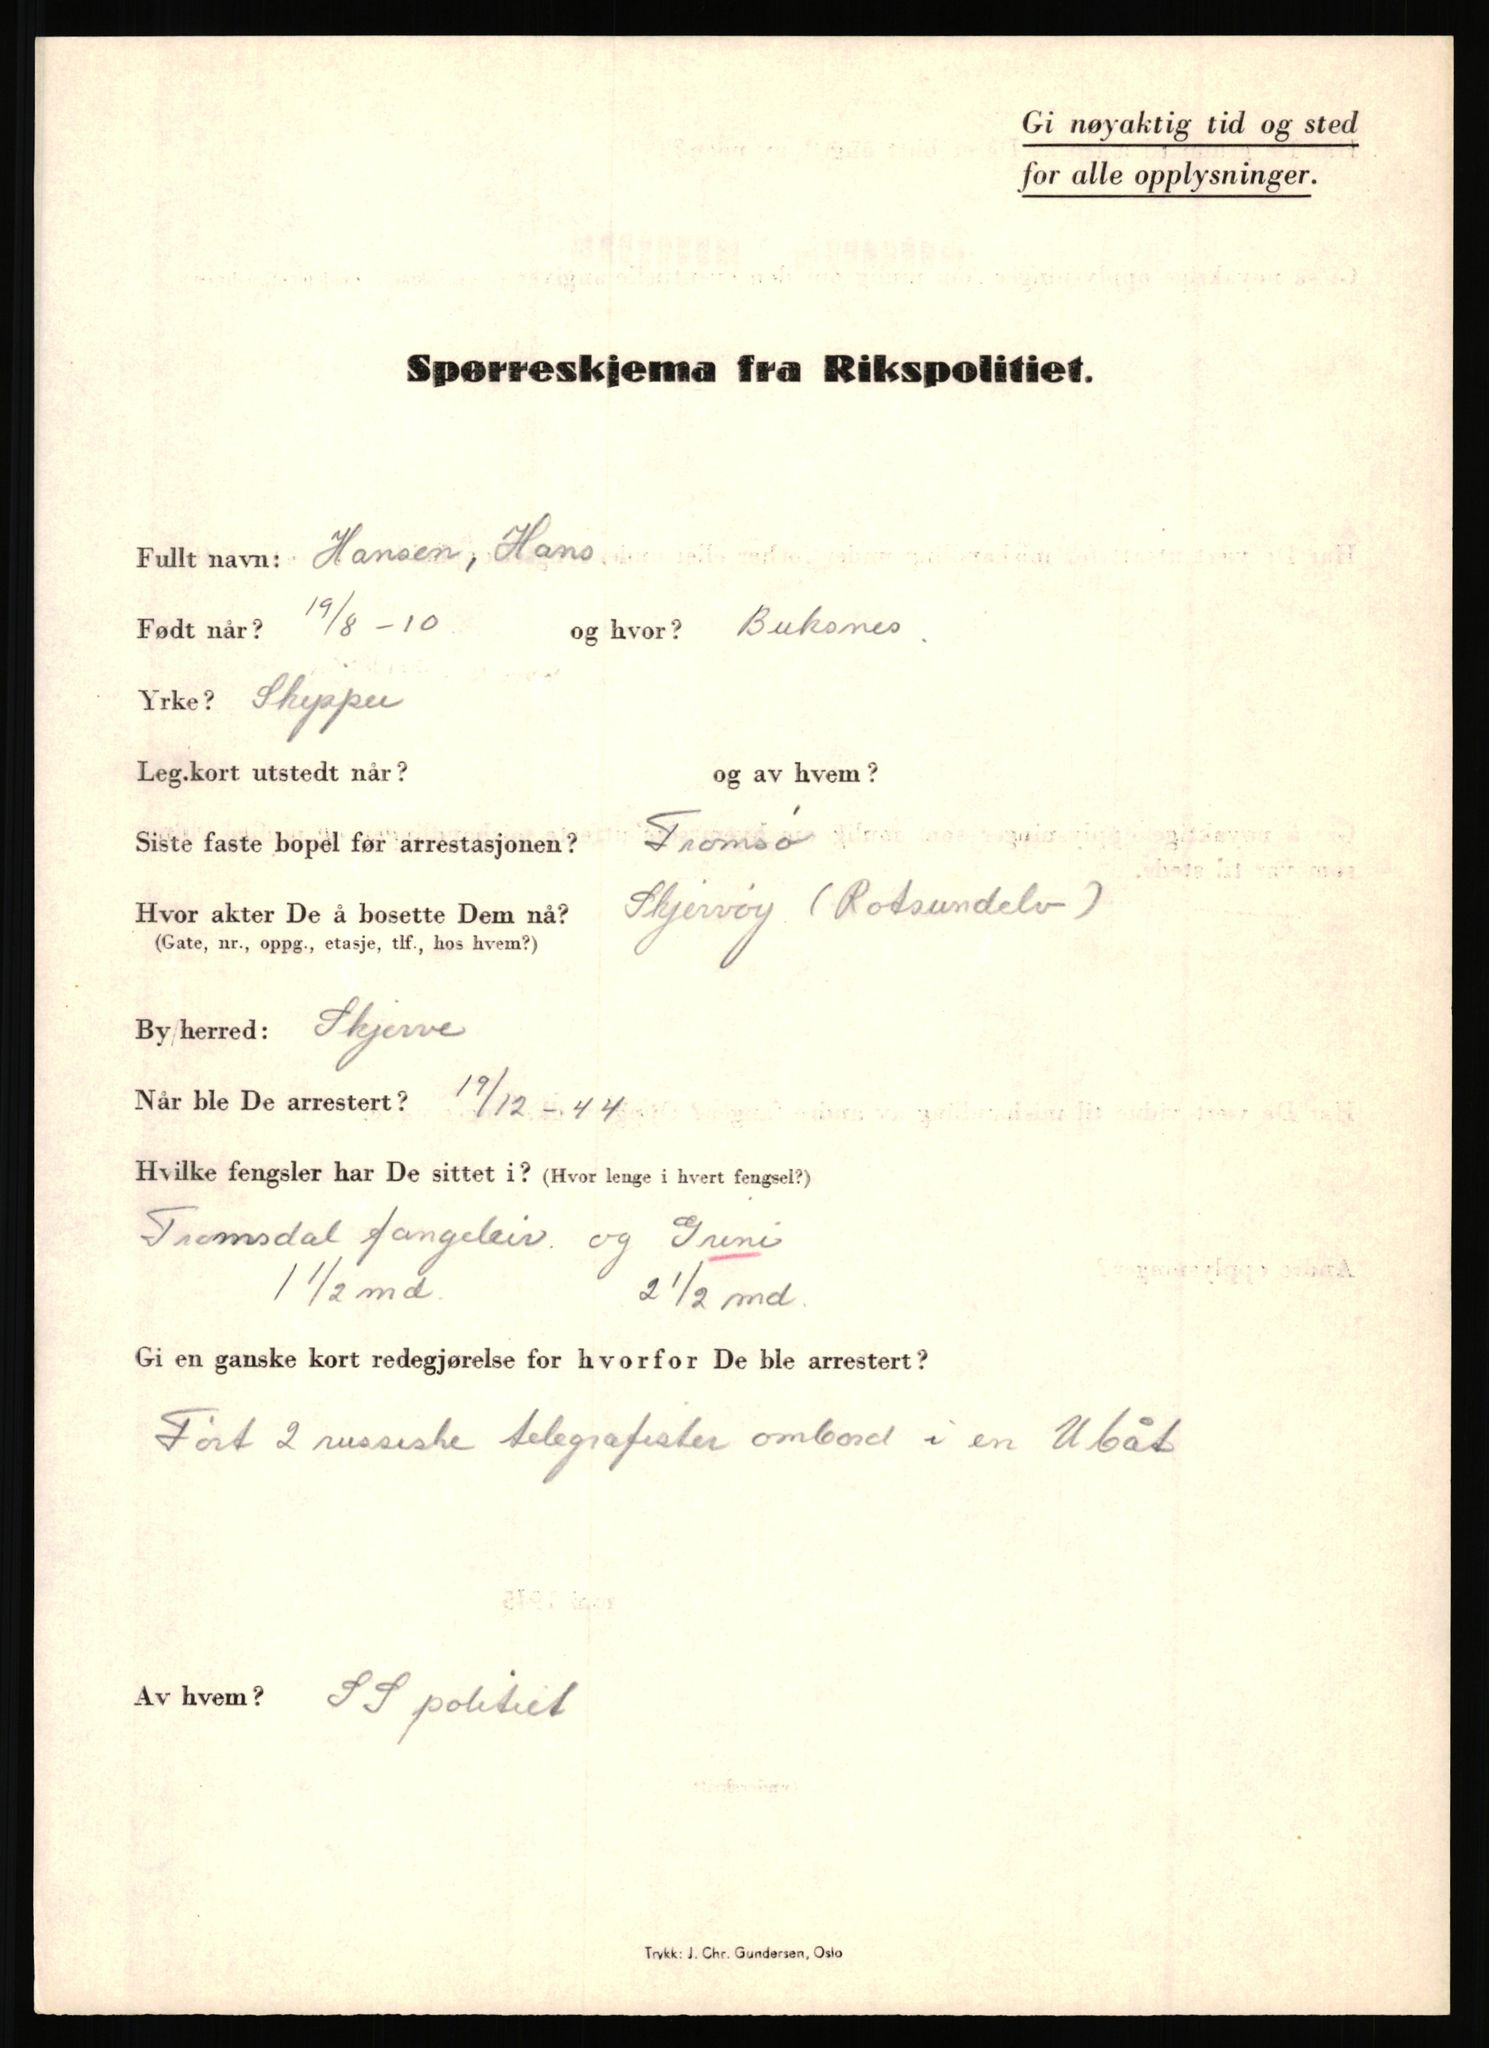 Gi nøyaktig tid og sted
for alle opplysninger.
Spørreskjema fra Rikspolitiet.
Fullt navn: Hansen, Hans
Født når? 19/8 - 10 og hvor? Buksnes.
Yrke? Skipper
Leg.kort utstedt når? og av hvem?
Siste faste bopel før arrestasjonen? Tromsø
Hvor akter De å bosette Dem nå? Skjervøy (Rotsundelv)
(Gate, nr., oppg., etasje, tlf., hos hvem?)
By/herred: Skjerve
Når ble De arrestert? 19/12 - 44
Hvilke fengsler har De sittet i? (Hvor lenge i hvert fengsel?)
Tromsdal fangeleir. og Grini
1 1/2 md. 2 1/2 md.
Gi en ganske kort redegjørelse for hvorfor De ble arrestert?
Ført 2 russiske telegrafister ombord i en Ubåt
Av hvem? SS politiet
Trykk: J. Chr. Gundersen, Oslo